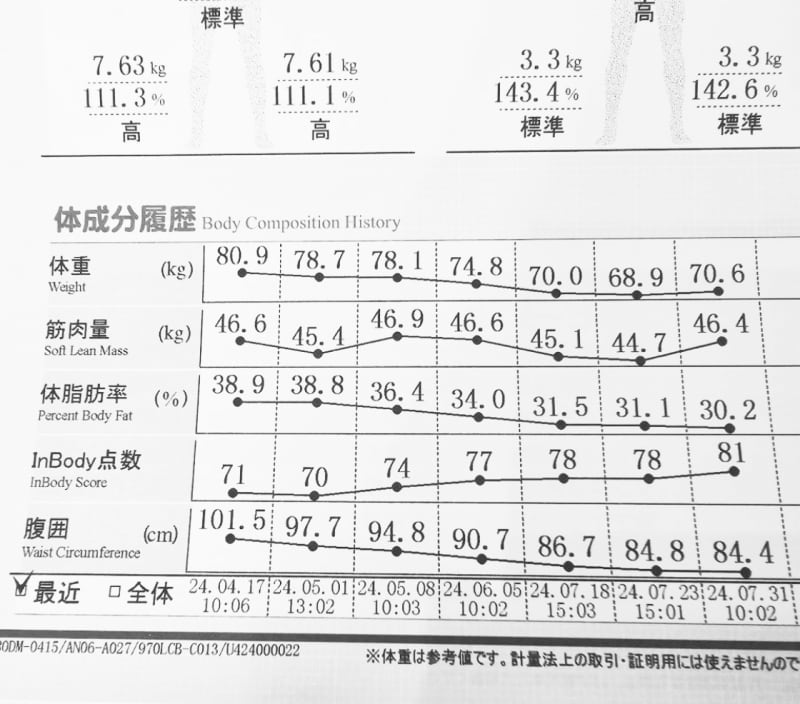 標準
高
7.63 kg
7.61 kg
3.3 kg
3.3 kg
111.3 %
111.1 %
143.4 %
142.6 %
高
高
標準
標準
体成分履歴 Body Composition History
体重 (kg) 80.9 78.7 78.1 74.8 70.0 68.9 70.6
Weight
筋肉量 (kg) 46.6 45.4 46.9 46.6 45.1 44.7 46.4
Soft Lean Mass
体脂肪率 (%) 38.9 38.8 36.4 34.0 31.5 31.1 30.2
Percent Body Fat
InBody点数 71 70 74 77 78 78 81
InBody Score
腹囲 (cm) 101.5 97.7 94.8 90.7 86.7 84.8 84.4
Waist Circumference
最近 全体 24.04.17 24.05.01 24.05.08 24.06.05 24.07.18 24.07.23 24.07.31
10:06 13:02 10:03 10:02 15:03 15:01 10:02
ODM-0415/AN06-A027/970LCB-C013/U424000022
※体重は参考値です。計量法上の取引・証明用には使えませんので